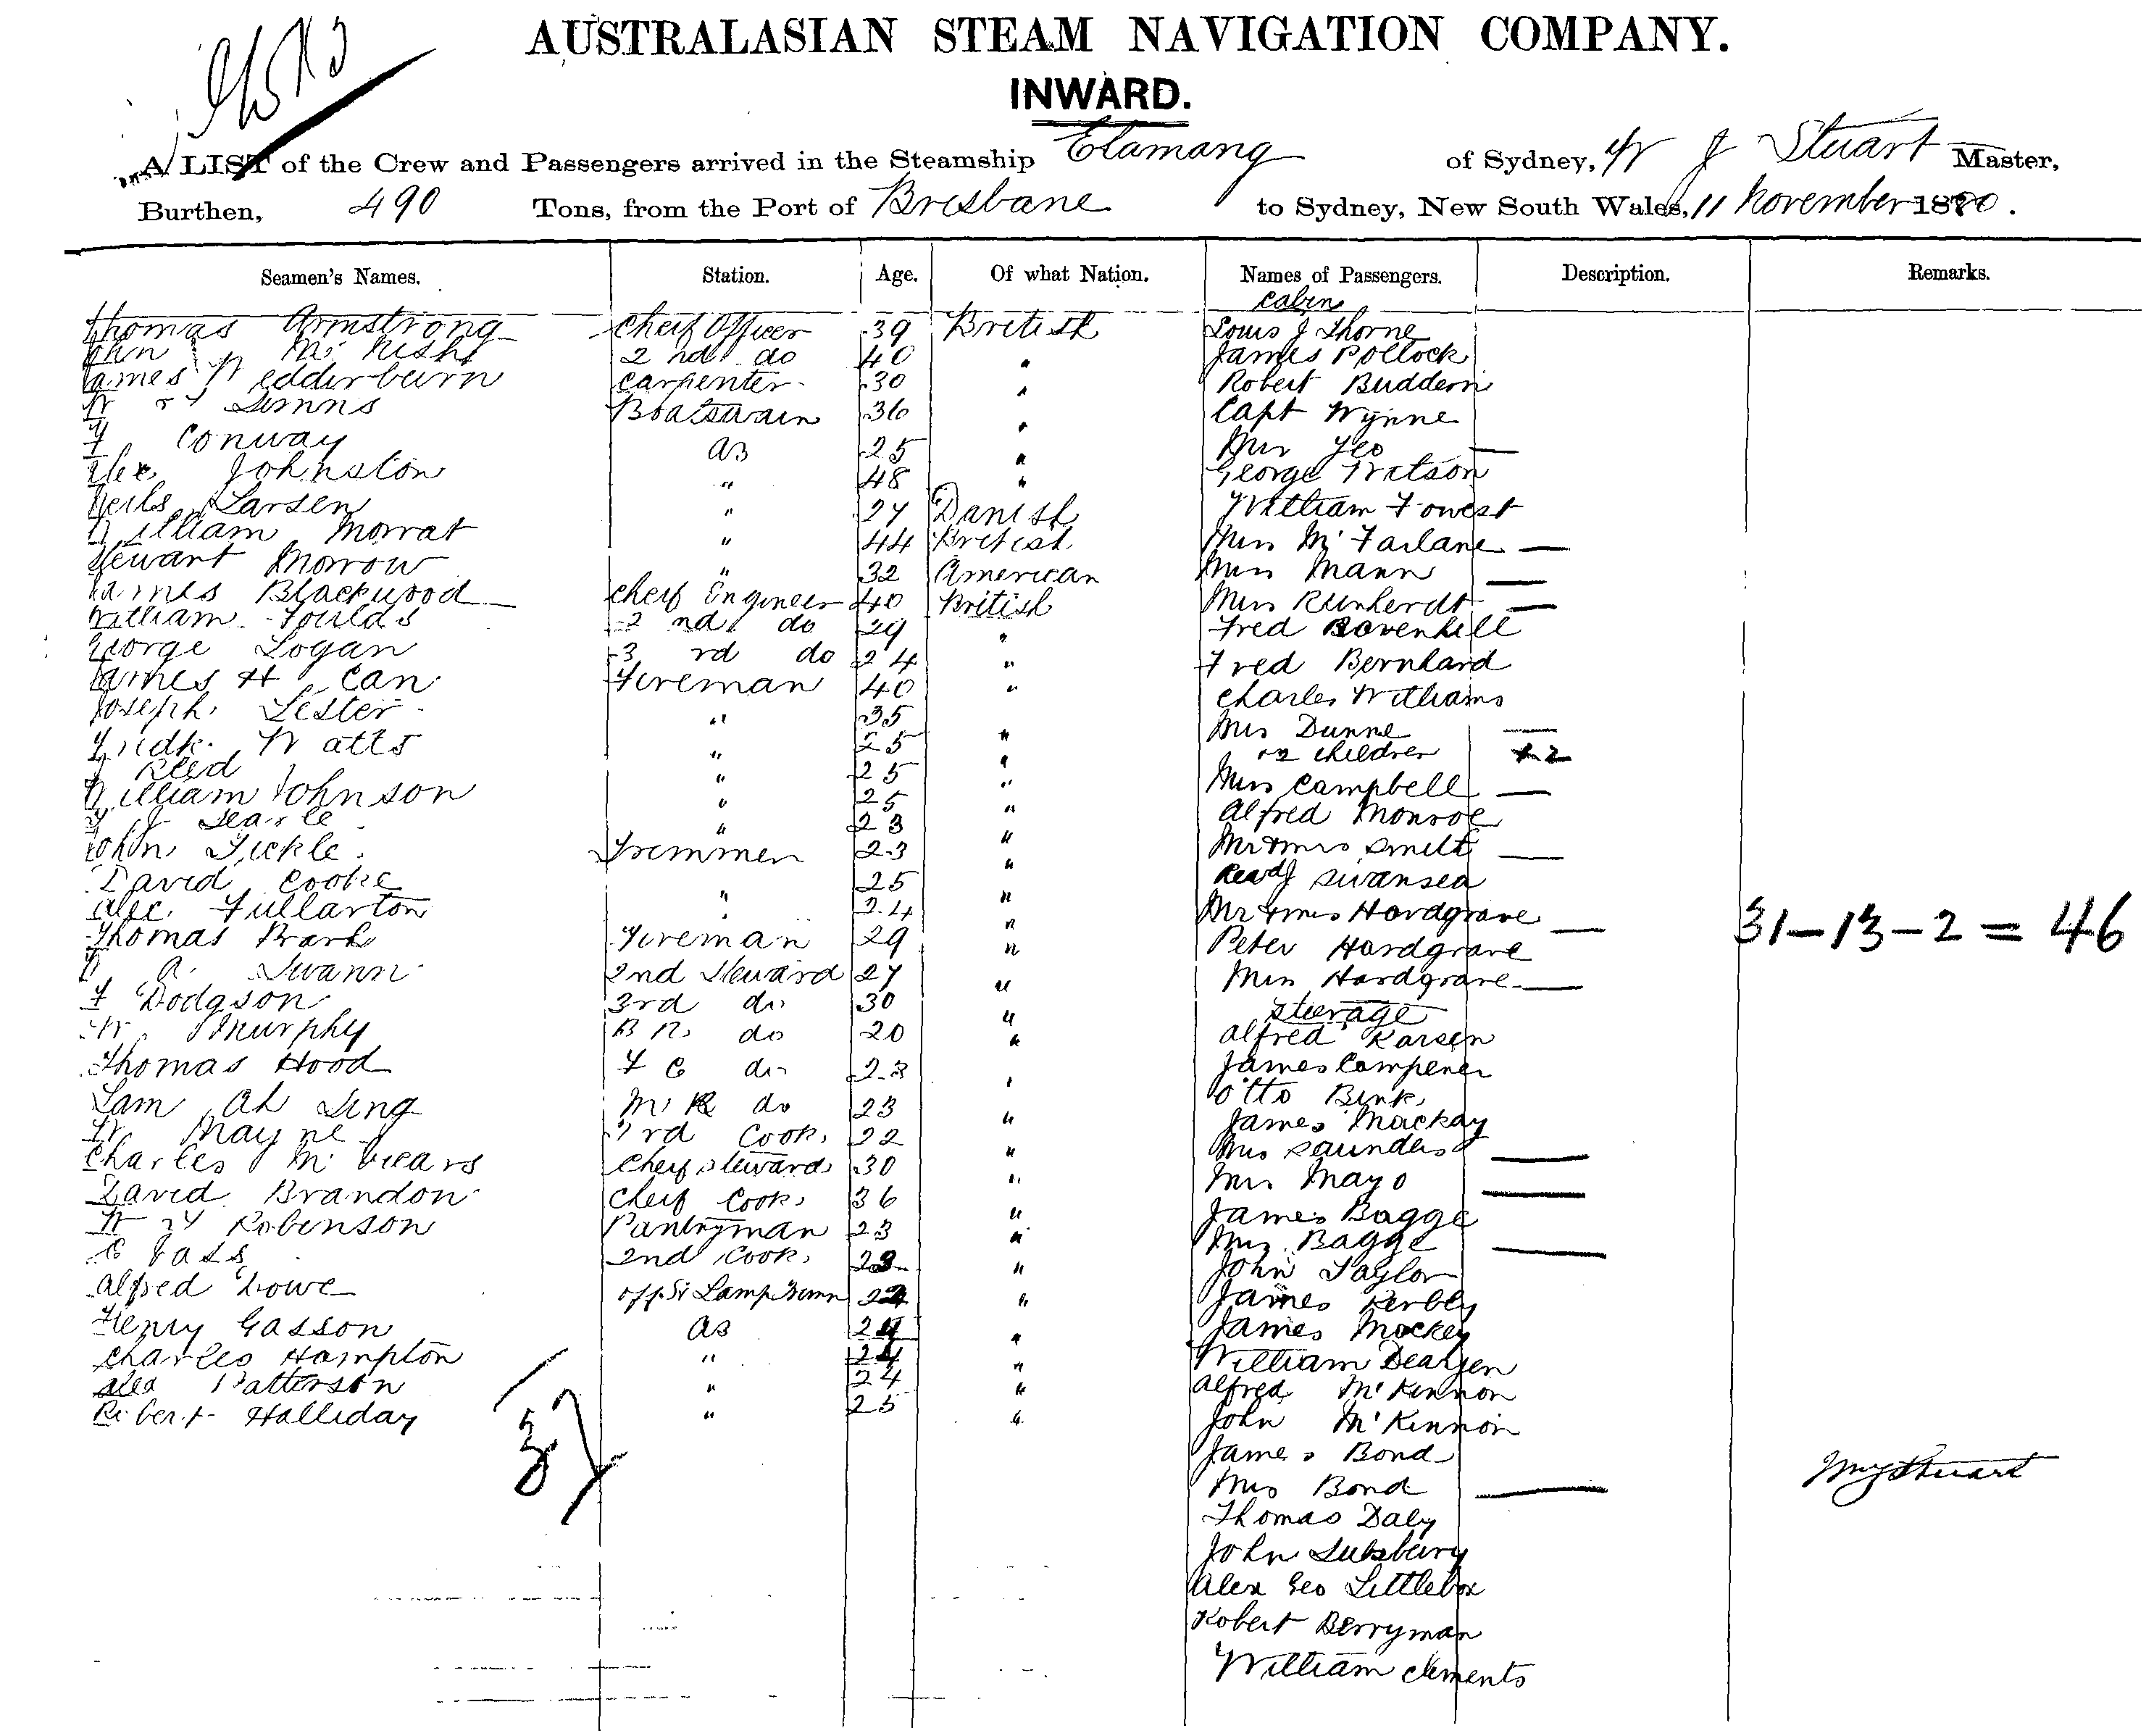 AUSTRALASIAN STEAM NAVIGATION COMPANY.
INWARD.
A LIST of the Crew and Passengers arrived in the Steamship Elamang of Sydney, W J Stuart Master,
Burthen, 490 Tons, from the Port of Brisbane to Sydney, New South Wales, 11 November 1880.
Seamen's Names. Station. Age. Of what Nation. Names of Passengers. Description. Remarks.
Cabin
Thomas Armstrong Cheif Officer 39 British Louis J Thorne
John 2nd do 40 " James Pollock
James Wedderburn Carpenter 30 " Robert Buddern
Simms Boatswain 36 " Capt Wynne
Conway AB 25 " Mrs Yeo —
Alex Johnston " 48 " George Watson
Neils Larsen " 27 Danish William Fowest
William Morrat " 44 British Miss McFarlane —
Stewart Morrow " 32 American Miss Mann —
James Blackwood Cheif Engineer 40 British Miss Reinherdt —
William Foulds 2nd do 29 " Fred Bovenhill
George Logan 3rd do 24 " Fred Bernhard
James H Can Fireman 40 " Charles Williams
Joseph Lester " 35 Mrs Dunne —
Fredk Watts " 25 " 2 children +2
J Reed " 25 " Miss Campbell —
William Johnson " 25 " Alfred Monroe
J Searle " 23 " Mr & Mrs Smith —
John Tickle Trimmer 23 " Swansea
David Cooke " 25 " Mr & Mrs Hardgrave —
Alec Fullarton " 24 " Peter Hardgrave
Thomas Fireman 29 " Miss Hardgrave —
A Swann 2nd Steward 27 " Steerage
F Dodgson 3rd do 30 " Alfred Karsen
W Murphy B R do 20 " James Compener
Thomas Hood F C do 23 " Otto Bink
Sam Ah Sing M R do 23 " James Mackay
W Mayne 3rd Cook 22 " Mrs Saunders —
Charles McVicars Cheif Steward 30 " Mrs Mayo —
David Brandon Cheif Cook 36 " James Bagge
W Robinson Pantryman 23 " Mrs Bagge —
C Vass 2nd Cook " John Taylor
Alfred Lowe " James Kerbly
Henry Gasson AB 24 " James Mockey
Charles Hampton " 24 " William
Alex Patterson " 24 " Alfred McKinnon
Robert Halliday " 25 " John McKinnon
James Bond
Mrs Bond —
Thomas Daly
John Sulsbury
Alex Geo Littlebox
Robert Berryman
William Clements
31 – 13 – 2 = 46
37